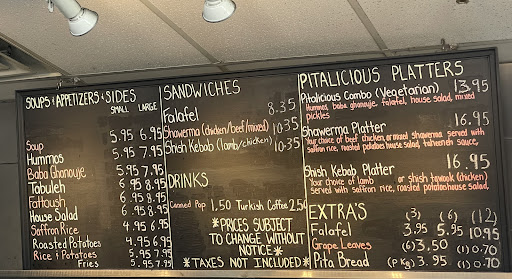 SOUPS & APPETIZERS & SIDES
SMALL LARGE
Soup 5.95 6.95
Hummos 5.95 7.95
Baba Ghanouje 5.95 7.95
Tabuleh 6.95 8.95
Fattoush 6.95 8.95
House Salad 6.95 8.95
Saffron Rice 4.95 6.95
Roasted Potatoes 4.95 6.95
Rice & Potatoes 5.95 7.95
Fries 5.95 7.95
SANDWICHES
Falafel 8.35
Shawerma (chicken/beef/mixed) 10.35
Shish Kebab (lamb/chicken) 10.35
DRINKS
Canned Pop 1.50 Turkish Coffee 2.50
*PRICES SUBJECT
TO CHANGE WITHOUT
NOTICE*
*TAXES NOT INCLUDED*
PITALICIOUS PLATTERS
Pitalicious Combo (Vegetarian) 13.95
Hummos, baba ghanouje, falafel, house salad, mixed
pickles
16.95
Shawerma Platter
Your choice of beef chicken, or mixed shawerma served with
saffron rice, roasted potatoes house salad, tahweneh sauce,
16.95
Shish Kebab Platter
Your choice of lamb or shish tawook (chicken)
served with saffron rice, roasted potatoes house salad,
EXTRA'S (3) (6) (12)
Falafel 3.95 5.95 10.95
Grape Leaves (6) 3.50 (1) 0.70
Pita Bread (PKg) 3.95 (1) 0.70